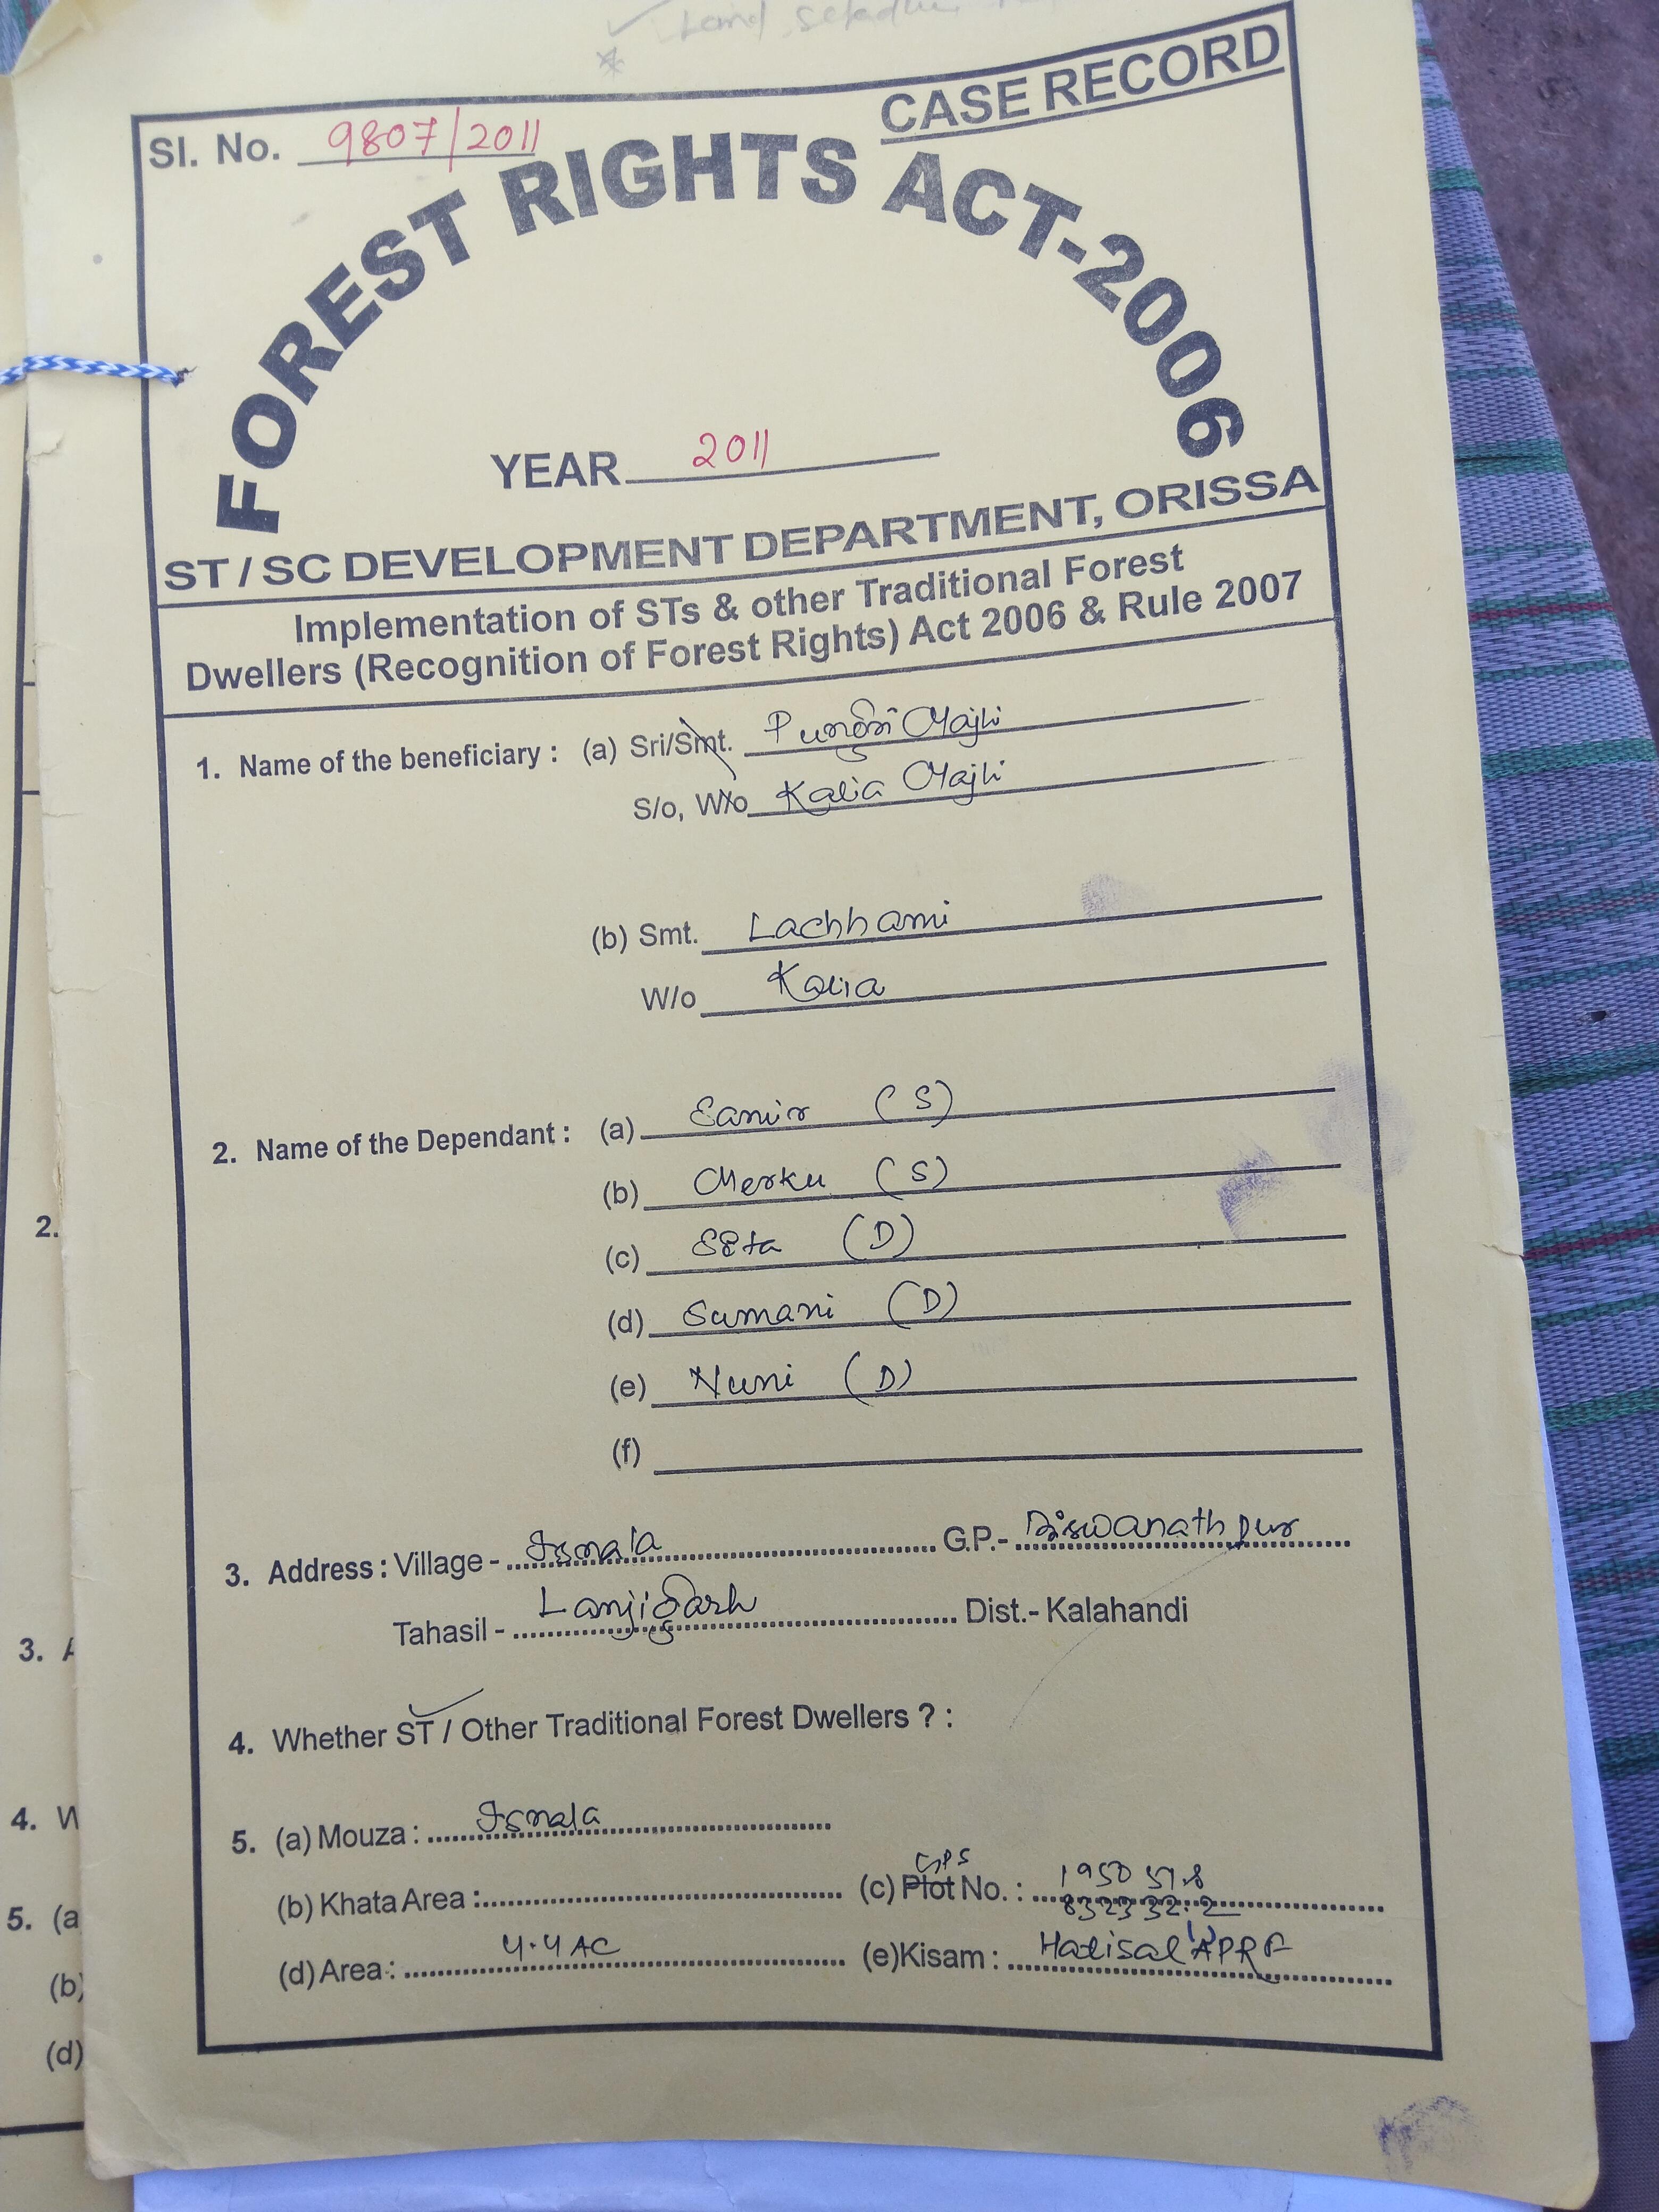 Land
CASE RECORD
Sl. No. 9807/2011
FOREST RIGHTS ACT-2006
YEAR 2011
ST / SC DEVELOPMENT DEPARTMENT, ORISSA
Implementation of STs & other Traditional Forest
Dwellers (Recognition of Forest Rights) Act 2006 & Rule 2007
1. Name of the beneficiary : (a) Sri/Smt. Pungri Majhi
S/o, W/o Kalia Majhi
(b) Smt. Lachhami
W/o Kalia
2. Name of the Dependant : (a) Samir (S)
(b) Merku (S)
(c) Sita (D)
(d) Sumani (D)
(e) Nuni (D)
(f)
3. Address : Village - G.P.- Biswanathpur
Tahasil - Lanjigarh Dist.- Kalahandi
4. Whether ST / Other Traditional Forest Dwellers ? :
5. (a) Mouza :
(b) Khata Area : (c) Plot GPS No. : 1950 57.8
832332.2
(d) Area : 4.4 AC (e) Kisam : Hatisal APRF
2.
3. A
4. W
5. (a
(b)
(d)